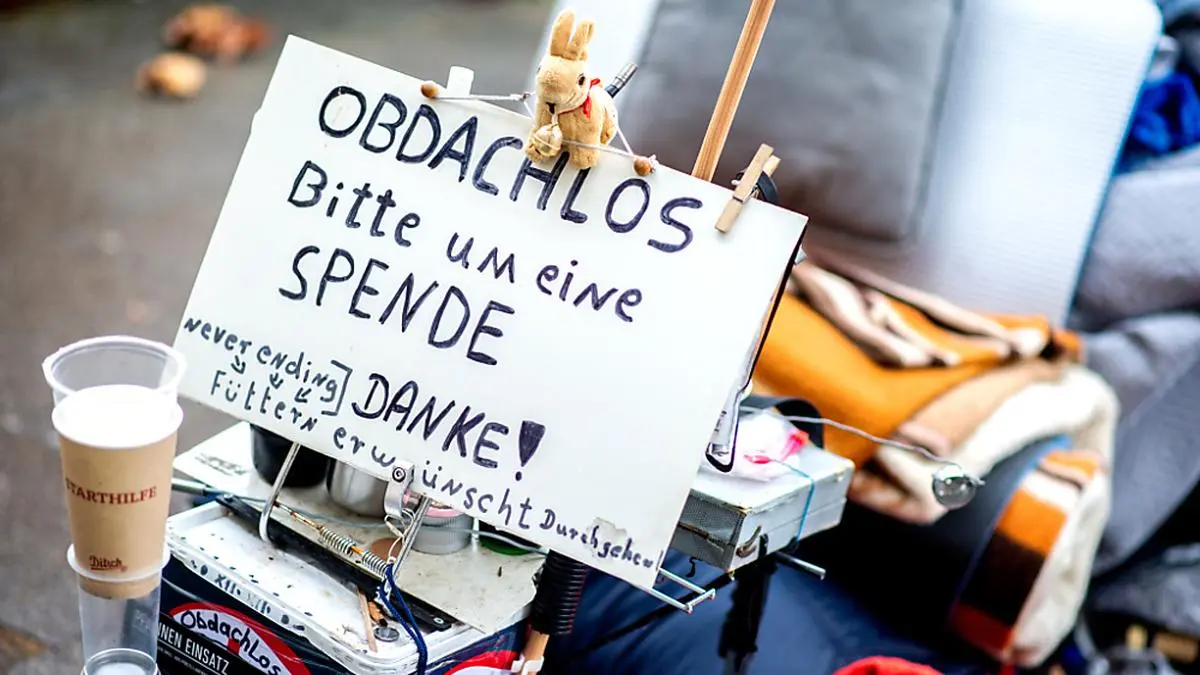 OBDACHLOS
Bitte um eine
SPENDE
never ending
DANKE!
Füttern erwünscht Durchgehend
STARTHILFE
Ditsch
Obdachlos
INEN EINSATZ